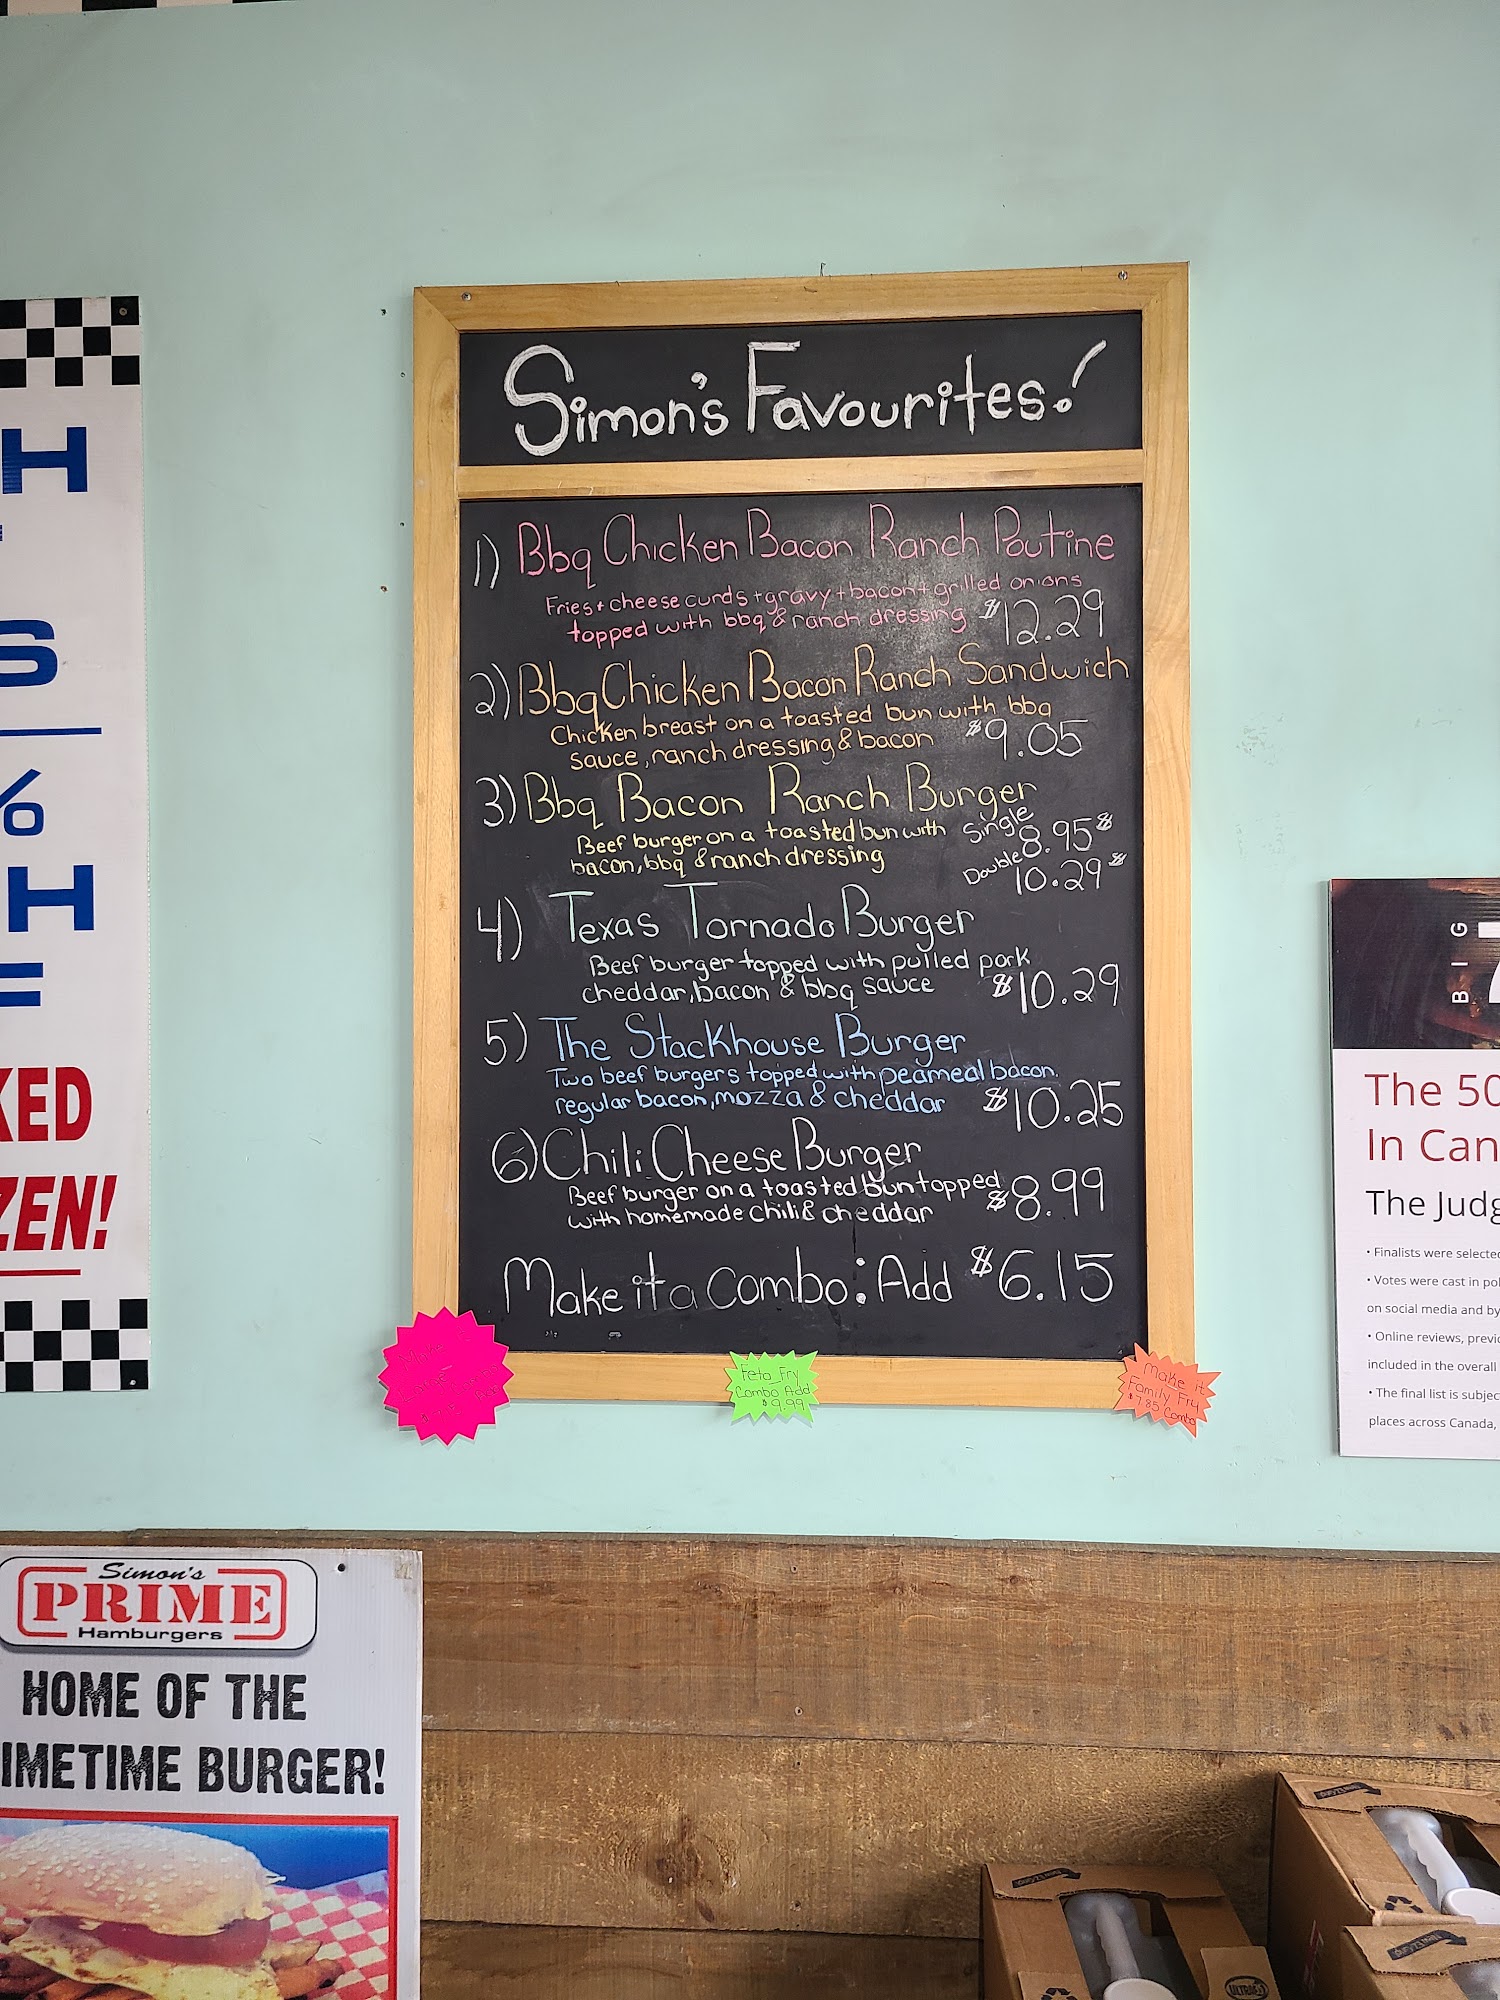 Simon's Favourites!
1) Bbq Chicken Bacon Ranch Poutine
Fries + cheese curds + gravy + bacon + grilled onions
topped with bbq & ranch dressing $12.29
2) Bbq Chicken Bacon Ranch Sandwich
Chicken breast on a toasted bun with bbq
sauce, ranch dressing & bacon $9.05
3) Bbq Bacon Ranch Burger
Beef burger on a toasted bun with Single 8.95$
bacon, bbq & ranch dressing Double 10.29$
4) Texas Tornado Burger
Beef burger topped with pulled pork
cheddar, bacon & bbq sauce $10.29
5) The Stackhouse Burger
Two beef burgers topped with peameal bacon,
regular bacon, mozza & cheddar $10.25
6) Chili Cheese Burger
Beef burger on a toasted bun topped $8.99
with homemade chili & cheddar
Make it a combo: Add $6.15
Make
Feta Fry
Combo Add
$9.99
Make it
Family Fry
$7.85 Combo
H
S
%
H
F
KED
ZEN!
Simon's
PRIME
Hamburgers
HOME OF THE
IMETIME BURGER!
BIG
7
The 50
In Can
The Judg
• Finalists were selected
• Votes were cast in pol
on social media and by
• Online reviews, previo
included in the overall
• The final list is subjec
places across Canada,